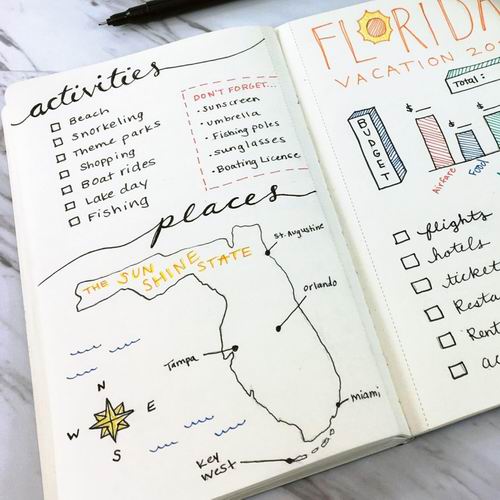 activities
Beach
Snorkeling
Theme parks
Shopping
Boat rides
Lake day
Fishing
DON'T FORGET...
• Sunscreen
• Umbrella
• Fishing poles
• Sunglasses
• Boating License
places
THE SUN
SHINE STATE
St. Augustine
Orlando
Tampa
Miami
Key
West
N
W E
S
FLORIDA
VACATION
Total:
BUDGET
$ $
Airfare
Food
flights
hotels